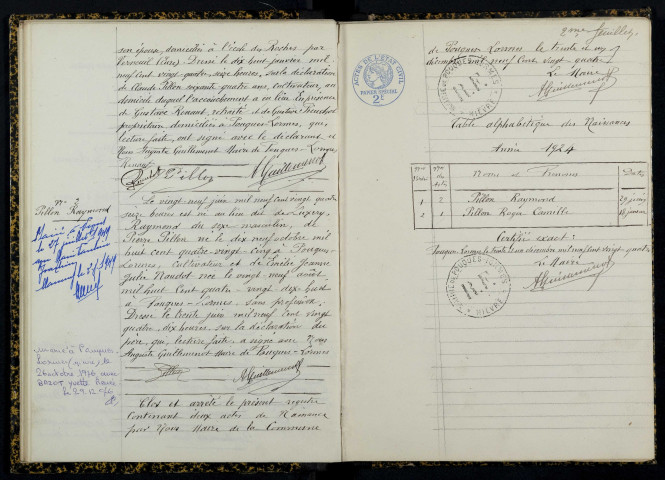 son épouse, domiciliée à l'école des Roches par
Verneuil (Eure). Dressé le dix huit janvier mil
neuf cent vingt-quatre, seize heures, sur la déclaration
de Claude Pillon, quatre ans, cultivateur, au
domicile duquel l'accouchement a eu lieu. En présence
de Gustave Renaut, retraité et de Gustave
propriétaire domiciliés à Pouques-Lormes, qui,
lecture faite, ont signé avec le déclarant et
Nous Auguste Guilleminot Maire de Pouques-Lormes
Renaut
Pillon AGuilleminot
N° 2
Pillon Raymond
Le vingt-neuf juin mil neuf cent vingt quatre
seize heures est né au lieu dit de Luxery
Raymond du sexe masculin, de
Pierre Pillon né le dix neuf octobre mil
huit cent quatre-vingt-cinq à Pouques-
Lormes, cultivateur et de Emilie Jeanne
Julie née le vingt neuf août
mil huit cent quatre vingt dix huit
à Pouques-Lormes, sans profession.
Dressé le trente juin mil neuf cent vingt
quatre, dix heures, sur la déclaration du
père, qui, lecture faite, a signé avec Nous
Auguste Guilleminot Maire de Pouques-Lormes
Pillon AGuilleminot
Marié à
le 29 juillet 1949
avec
Marié à Pouques
Lormes (Nièvre) le
26 octobre 1976 avec
yvette
le 29.12.76
Clos et arrêté le présent registre
Contenant deux actes de Naissance
par Nous Maire de la Commune
ACTES DE L'ETAT CIVIL
PAPIER SPECIAL
2F
2me feuillet
de Pouques Lormes le trente et un
décembre mil neuf cent vingt quatre
Le Maire
AGuilleminot
MAIRIE DE POUQUES-LORMES
R.F.
NIEVRE
Table alphabétique des Naissances
Année 1924
Noms et Prénoms Dates
1 2 Pillon Raymond 29 juin
2 1 Pillon Roger Camille 18 janvier
Certifié exact :
Pouques-Lormes le trente et un décembre mil neuf cent vingt-quatre
Le Maire
AGuilleminot
MAIRIE DE POUQUES-LORMES
R.F.
NIEVRE